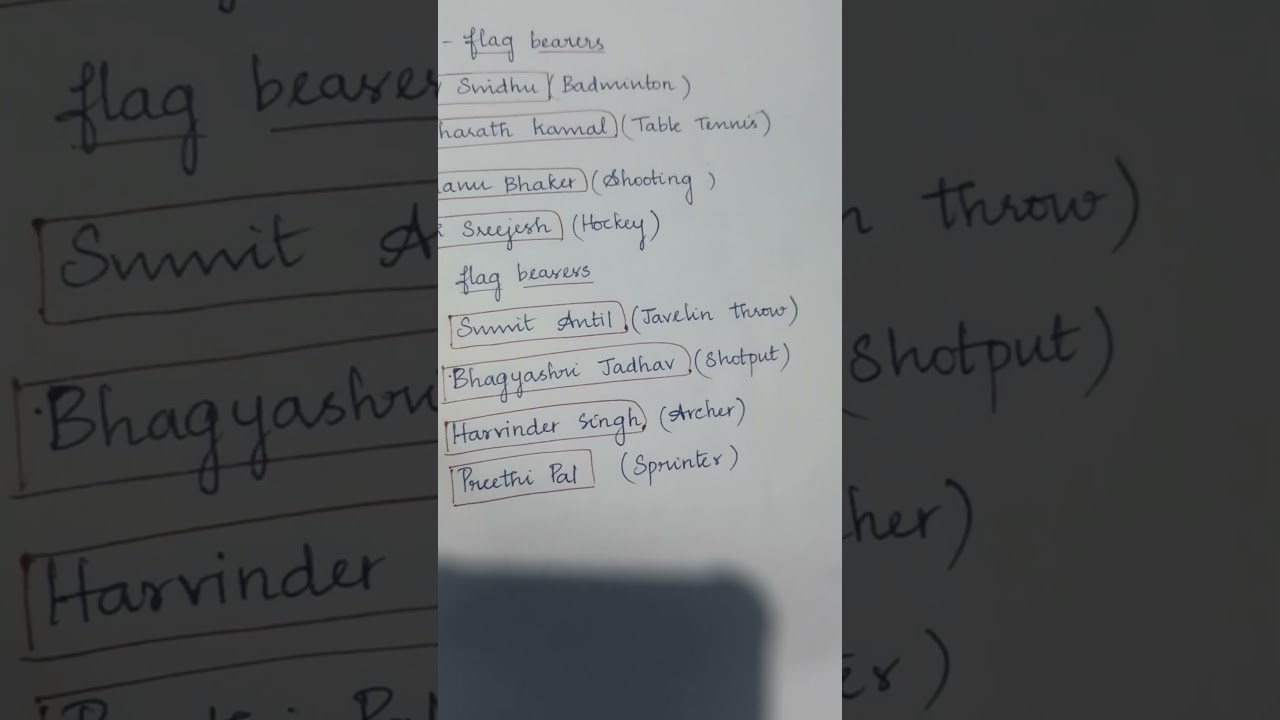 - flag bearers
Sindhu (Badminton)
harath Kamal (Table Tennis)
anu Bhaker (Shooting)
Sreejesh (Hockey)
flag bearers
Sumit Antil (Javelin throw)
Bhagyashri Jadhav (Shotput)
Harvinder Singh (Archer)
Preethi Pal (Sprinter)